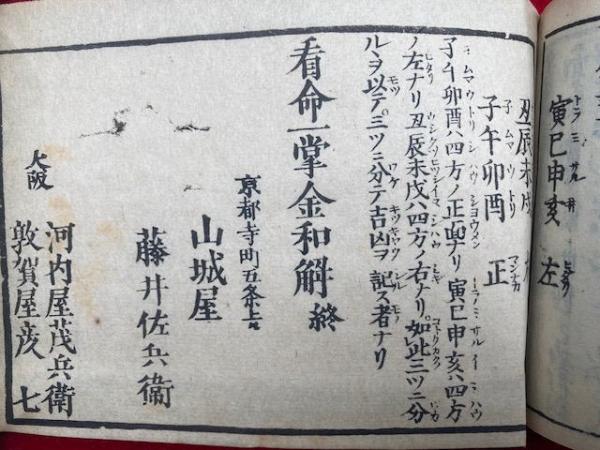 寅巳申亥 左
丑辰未戌
子午卯酉 正
子午卯酉ハ四方ノ正面ナリ寅巳申亥ハ四方
ノ左ナリ丑辰未戌ハ四方ノ右ナリ如此三ツニ分
ルヽヲ以テ三ツニ分テ吉凶ヲ記ス者ナリ
看命一掌金和解 終
京都寺町五条上ル
山城屋
藤井佐兵衞
大阪
河内屋茂兵衞
敦賀屋彦七